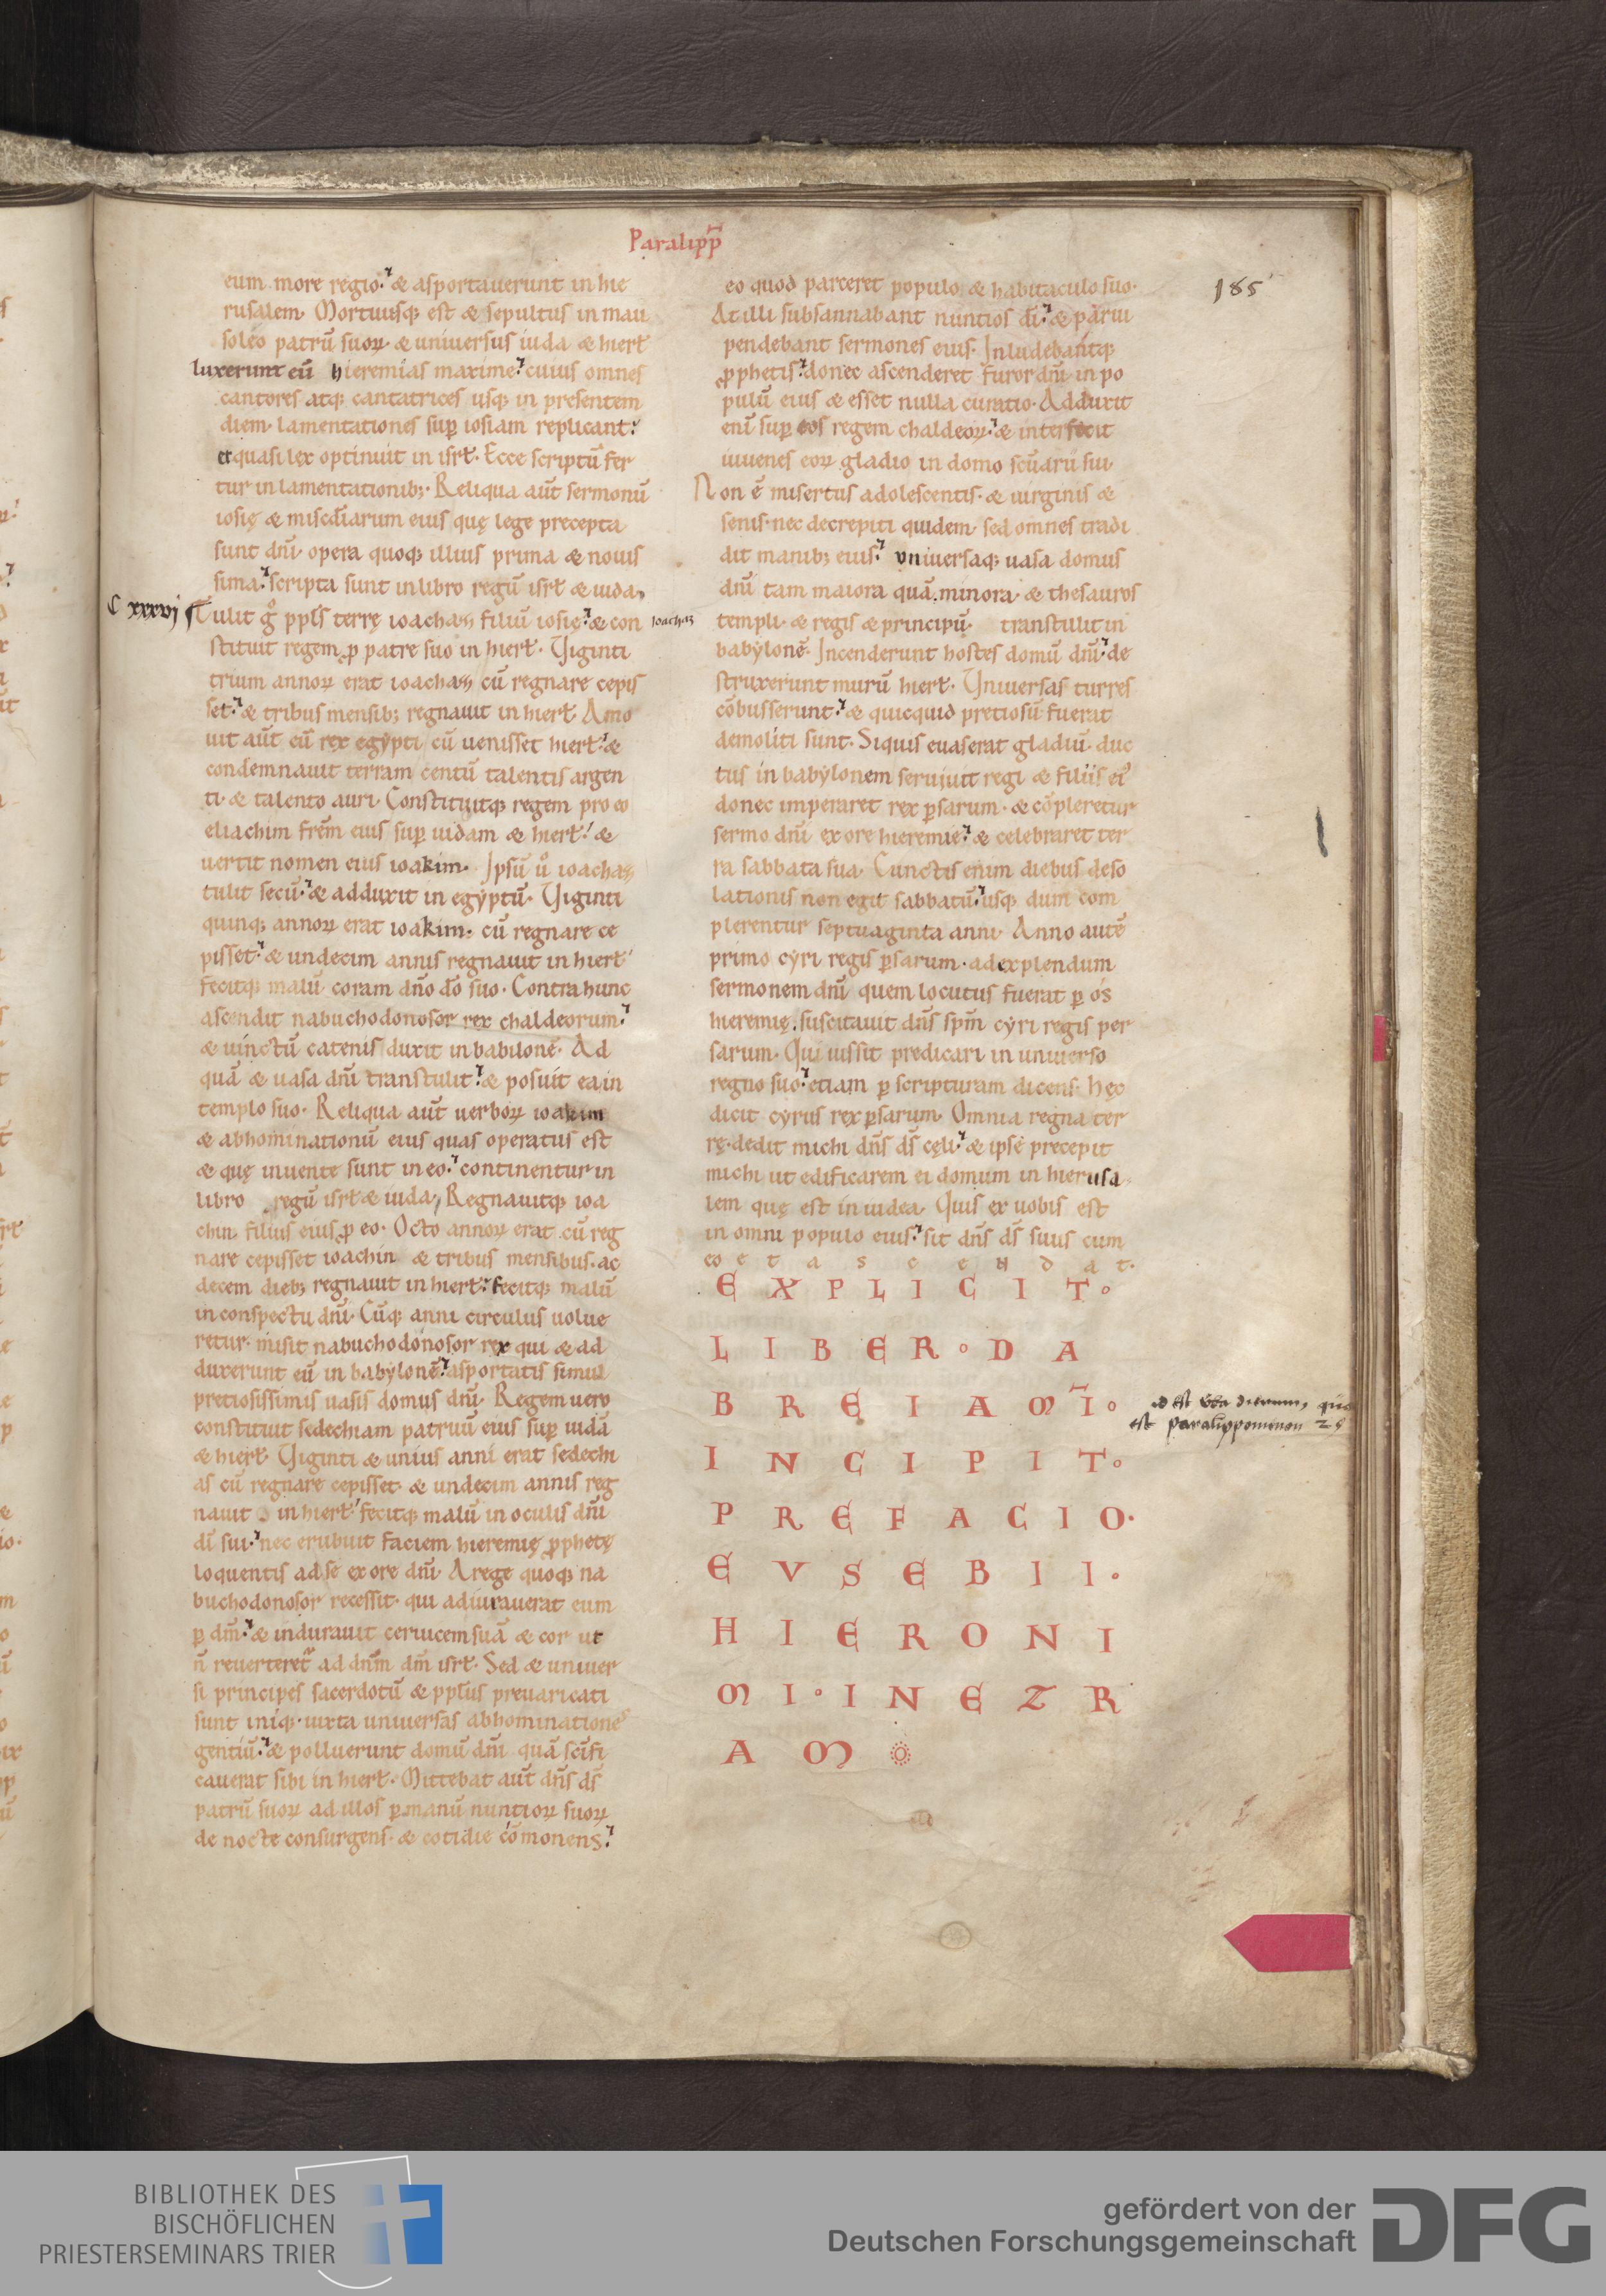 Paralipp̄
185
eum more regio. & asportauerunt in hie
rusalem. Mortuusq; est & sepultus in mau
soleo patrū suoꝝ. & uniuersus iuda & hierł
luxerunt eū hieremias maxime. cuius omnes
cantores atq; cantatrices usq; in presentem
diem. lamentationes sup̱ iosiam replicant.
et quasi lex optinuit in isrł. Ecce scriptū fer
tur in lamentationib;. Reliqua aūt sermonū
iosię & misc̄diarum eius quę lege precepta
sunt dn̄i. opera quoq; illius prima & nouis
sima. scripta sunt in libro regū isrł & iuda,
C xxxvj Tulit g̊ ppłs terrę ioachaz filiū iosię. & con
ioachaz
stituit regem ꝓ patre suo in hierł. Viginti
trium annoꝝ erat ioachaz cū regnare cepis
set. & tribus mensib; regnauit in hierł. Amo
uit aūt eū rex egypti cū uenisset hierł. &
condemnauit terram centū talentis argen
ti. & talento auri. Constituitq; regem pro eo
eliachim frēm eius sup̱ iudam & hierł. &
uertit nomen eius ioakim. Ipsū ů ioachaz
tulit secū. & adduxit in egyptū. Viginti
quinq; annoꝝ erat ioakim. cū regnare ce
pisset. & undecim annis regnauit in hierł.
fecitq; malū coram dn̄o dō suo. Contra hunc
ascendit nabuchodonosor rex chaldeorum.
& uinctū catenis duxit in babilonē. Ad
quā & uasa dn̄i transtulit. & posuit ea in
templo suo. Reliqua aūt uerboꝝ ioakim
& abhominationū eius quas operatus est
& quę inuente sunt in eo. continentur in
libro regū isrł & iuda, Regnauitq; ioa
chin filius eius ꝓ eo. Octo annoꝝ erat cū reg
nare cepisset ioachin & tribus mensibus. ac
decem dieb; regnauit in hierł. fecitq; malū
in conspectu dn̄i. Cūq; anni circulus uolue
retur. misit nabuchodonosor rex qui & ad
duxerunt eū in babylonē. asportatis simul
pretiosissimis uasis domus dn̄i. Regem uero
constituit sedechiam patruū eius sup̱ iudā
& hierł. Viginti & unius anni erat sedechi
as cū regnare cepisset. & undecim annis reg
nauit in hierł. fecitq; malū in oculis dn̄i
dī sui. nec erubuit faciem hieremię ꝓphetę
loquentis ad se ex ore dn̄i. A rege quoq; na
buchodonosor recessit. qui adiurauerat eum
ꝑ dm̄. & indurauit ceruicem suā & cor ut
n̄ reuerteret̃ ad dn̄m dm̄ isrł. Sed & uniuer
si principes sacerdotū & ppłus preuaricati
sunt iniq; iuxta uniuersas abhominationes
gentiū. & polluerunt domū dn̄i quā sc̄ifi
cauerat sibi in hierł. Mittebat aūt dn̄s ds̄
patrū suoꝝ ad illos ꝑ manū nuntioꝝ suoꝝ
de nocte consurgens. & cotidie cōmonens.
eo quod parceret populo & habitaculo suo.
At illi subsannabant nuntios dī. & parui
pendebant sermones eius. Inludebantq;
ꝓphetis. donec ascenderet furor dn̄i in po
pulū eius & esset nulla curatio. Adduxit
enī sup̱ eos regem chaldeoꝝ. & interfecit
iuuenes eoꝝ gladio in domo sc̄uarii sui.
Non ē misertus adolescentis. & uirginis &
senis. nec decrepiti quidem. sed omnes tradi
dit manib; eius. Vniuersaq; uasa domus
dn̄i tam maiora quā minora. & thesauros
templi. & regis & principū transtulit in
babylonē. Incenderunt hostes domū dn̄i. de
struxerunt murū hierł. Vniuersas turres
cōbusserunt. & quicquid pretiosū fuerat
demoliti sunt. Siquis euaserat gladiū. duc
tus in babylonem seruiuit regi & filiis ei᾽
donec imperaret rex ꝑsarum. & cōpleretur
sermo dn̄i ex ore hieremię. & celebraret ter
ra sabbata sua. Cunctis enim diebus deso
lationis non egit sabbatū. usq; dum com
plerentur septuaginta anni. Anno autē
primo cyri regis ꝑsarum. ad explendum
sermonem dn̄i quem locutus fuerat ꝑ os
hieremię. suscitauit dn̄s spm̄ cyri regis per
sarum. Qui iussit predicari in uniuerso
regno suo. etiam ꝑ scripturam dicens. Hęc
dicit cyrus rex ꝑsarum. Omnia regna ter
rę dedit michi dn̄s ds̄ cęli. & ipse precepit
michi ut edificarem ei domum in hierusa
lem quę est in iudea. Quis ex uobis est
in omni populo eius. sit dn̄s ds̄ suus cum
eo et ascendat.
EXPLICIT.
LIBER. DA
BREIAMĪ.
INCIPIT.
PREFACIO.
EVSEBII.
HIERONI
MI. IN EZR
AM
id est dierum,
est paralippomenon 2s
BIBLIOTHEK DES
BISCHÖFLICHEN
PRIESTERSEMINARS TRIER
gefördert von der
Deutschen Forschungsgemeinschaft
DFG